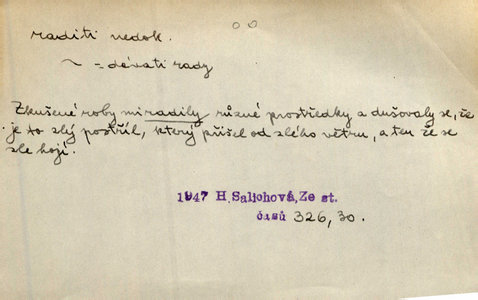 raditi nedok.
~ = dávati rady
Zkušené roby mi radily různé prostředky a dušovaly se, že
je to zlý postřil, který přišel od zlého větru, a ten že se
zle hojí.
1947 H.Salichová,Ze st.
časů 326, 30.